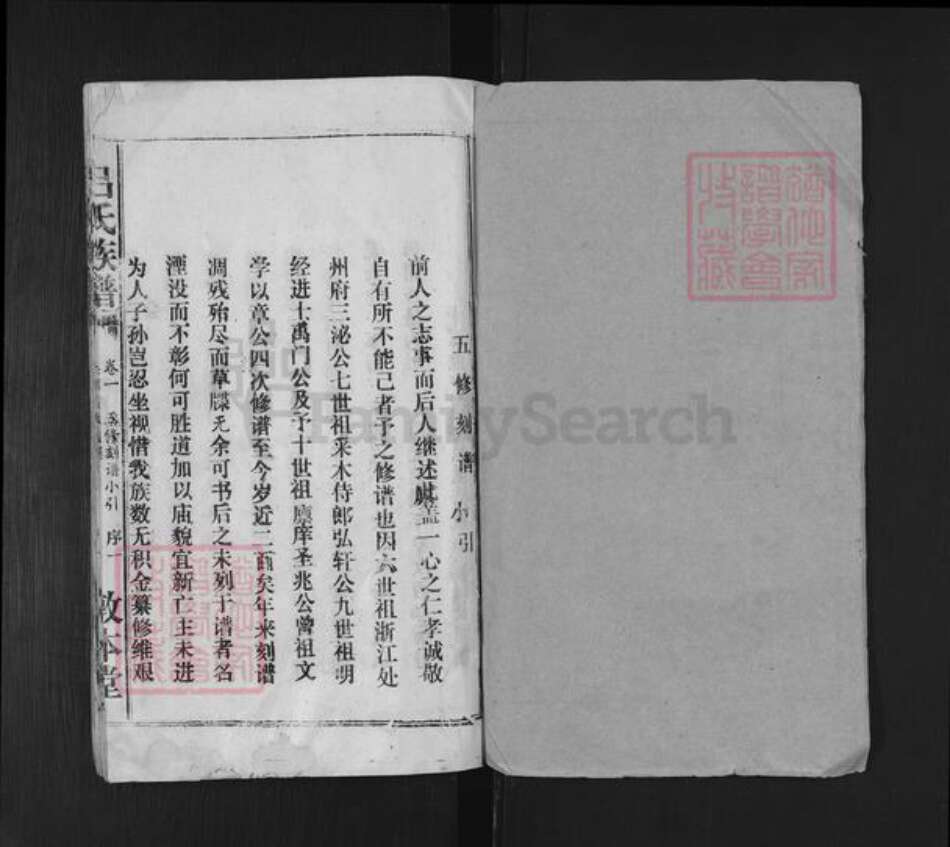 五修刻谱小引
前人之志事而后人继述之盖一心之仁孝诚敬
自有所不能己者予之修谱也因六世祖浙江处
州府三泌公七世祖采木侍郎弘轩公九世祖明
经进士禹门公及予十世祖廪庠圣兆公曾祖文
学以章公四次修谱至今岁近二百矣年来刻谱
凋残殆尽而草牒无余可书后之未列于谱者名
湮没而不彰何可胜道加以庙貌宜新亡主未进
为人子孙岂忍坐视惜我族数无积金纂修维艰
吕氏族谱
卷一
五修刻谱小引
序一
敦本堂
FamilySearch